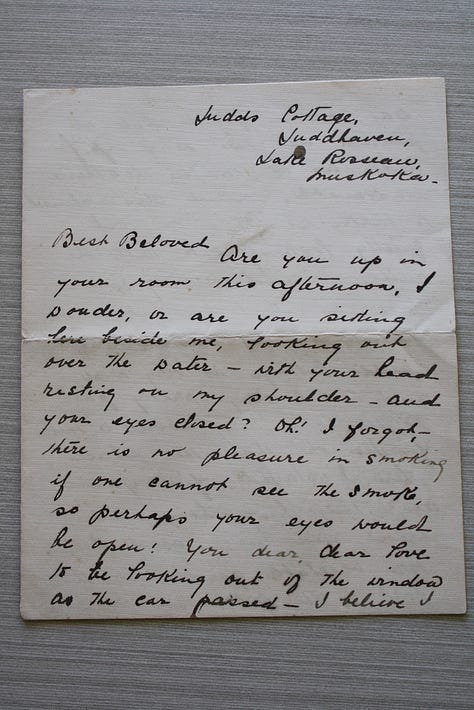 Judds Cottage,
Juddhaven,
Lake Rosseau,
Muskoka-
Best Beloved Are you up in
your room this afternoon, I
wonder, or are you sitting
here beside me, looking out
over the water - with your head
resting on my shoulder - and
your eyes closed? Oh! I forgot,-
there is no pleasure in smoking
if one cannot see the smoke,
so perhaps your eyes would
be open! You dear, dear love
to be looking out of the window
as the car passed - I believe I